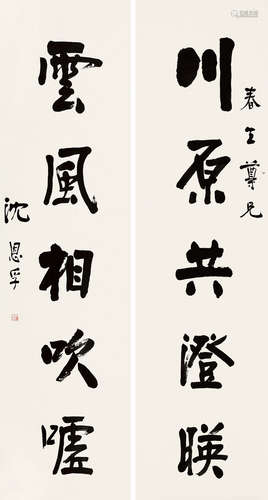 川原共澄暎
春生尊兄
雲風相吹嘘
沈恩孚